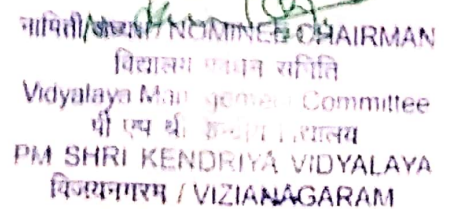 नामिती/अध्यक्ष / NOMINEE CHAIRMAN
विद्यालय प्रबंधन समिति
Vidyalaya Management Committee
पी एम श्री केन्द्रीय विद्यालय
PM SHRI KENDRIYA VIDYALAYA
विजयनगरम / VIZIANAGARAM